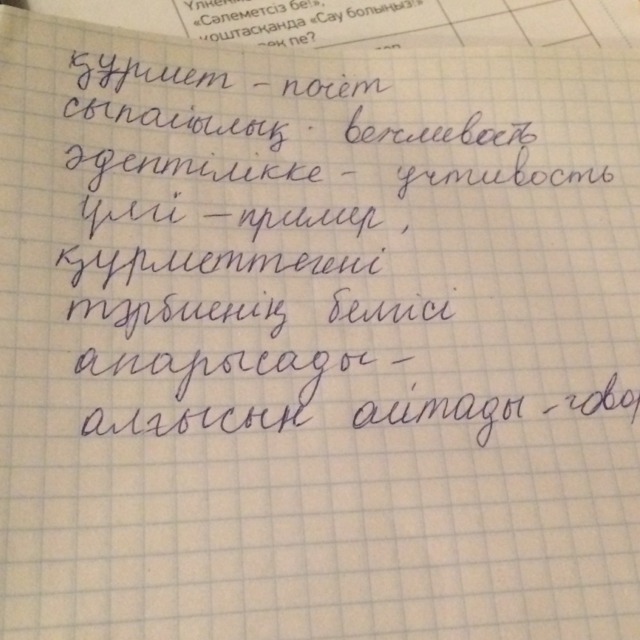 Үлкенмен
«Сәлеметсіз бе!»,
қоштасқанда «Сау болыңыз!»
құрмет – почёт
сыпайылық · вежливость
әдептілікке – учтивость
үлгі – пример,
құрметтегені
тәрбиенің белгісі
апарысады –
алғысын айтады – говор